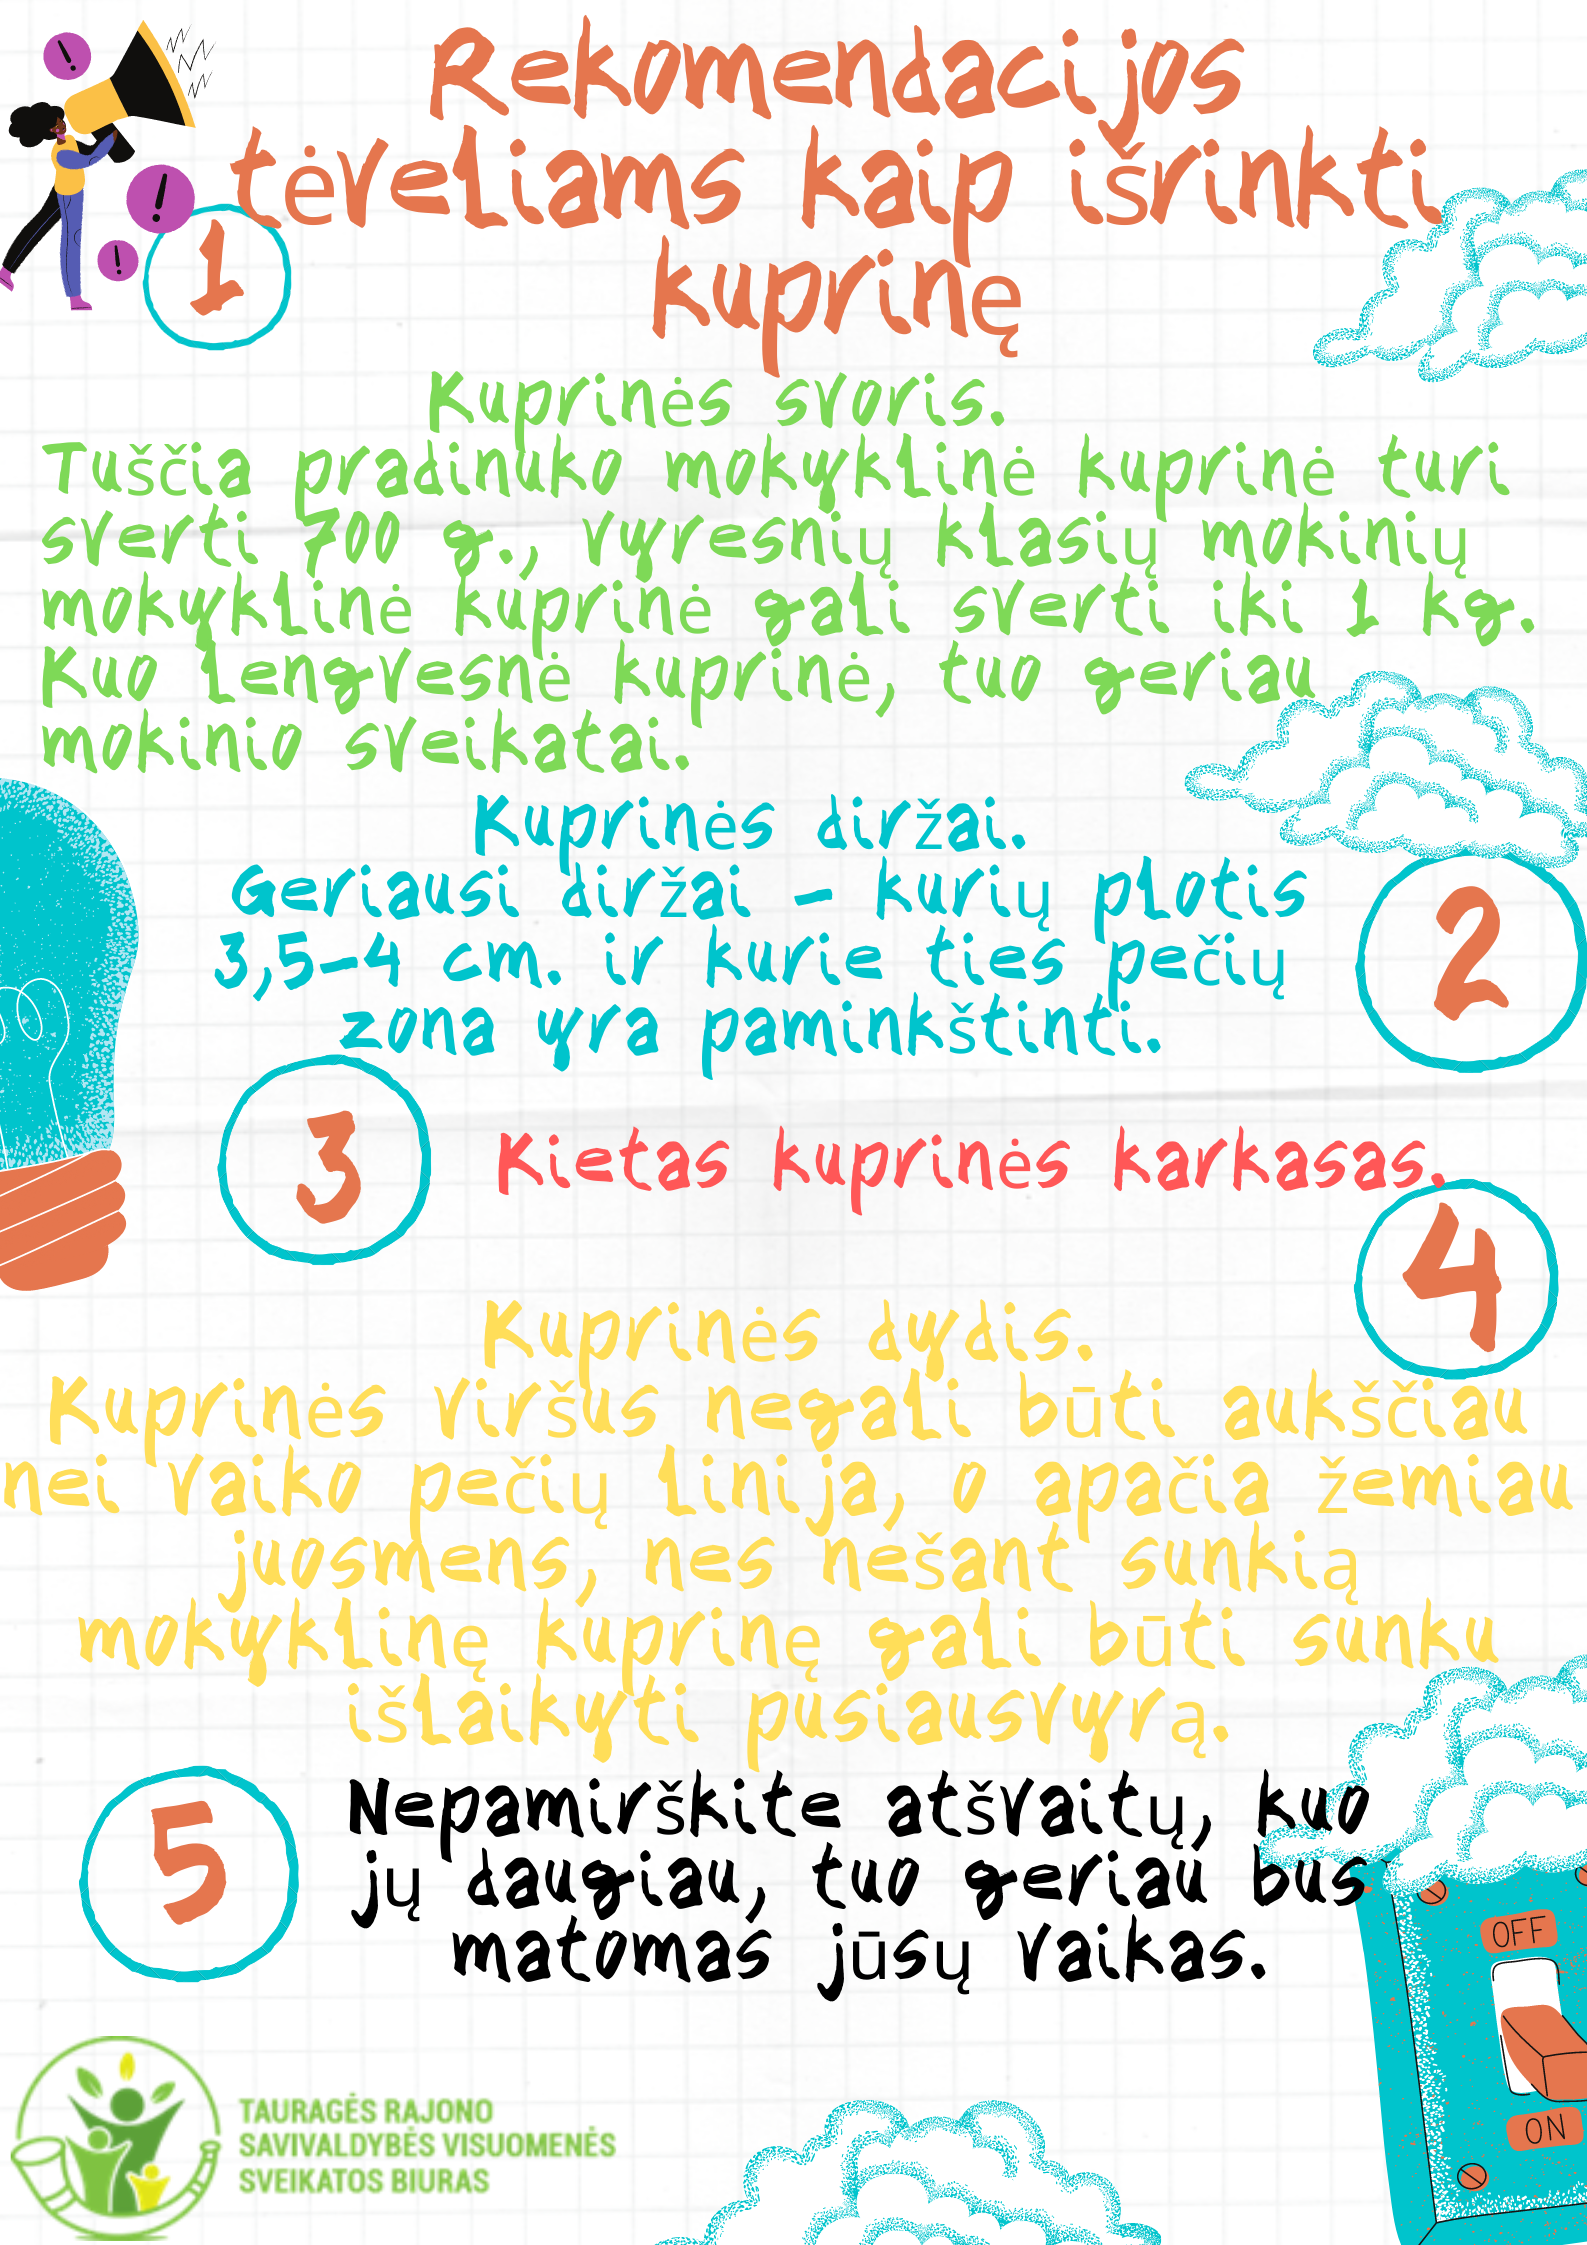 Rekomendacijos
tėveliams kaip išrinkti
kuprinę
1
Kuprinės svoris.
Tuščia pradinuko mokyklinė kuprinė turi
sverti 700 g., vyresnių klasių mokinių
mokyklinė kuprinė gali sverti iki 1 kg.
Kuo lengvesnė kuprinė, tuo geriau
mokinio sveikatai.
2
Kuprinės diržai.
Geriausi diržai - kurių plotis
3,5-4 cm. ir kurie ties pečių
zona yra paminkštinti.
3
Kietas kuprinės karkasas.
4
Kuprinės dydis.
Kuprinės viršus negali būti aukščiau
nei vaiko pečių linija, o apačia žemiau
juosmens, nes nešant sunkią
mokyklinę kuprinę gali būti sunku
išlaikyti pusiausvyrą.
5
Nepamirškite atšvaitų, kuo
jų daugiau, tuo geriau bus
matomas jūsų vaikas.
OFF
ON
TAURAGĖS RAJONO
SAVIVALDYBĖS VISUOMENĖS
SVEIKATOS BIURAS